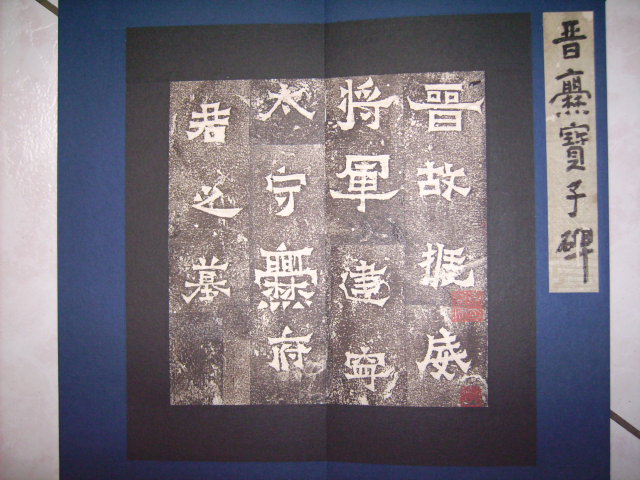 晋爨寶子碑
晉故振威
將軍建寧
太守爨府
君之墓